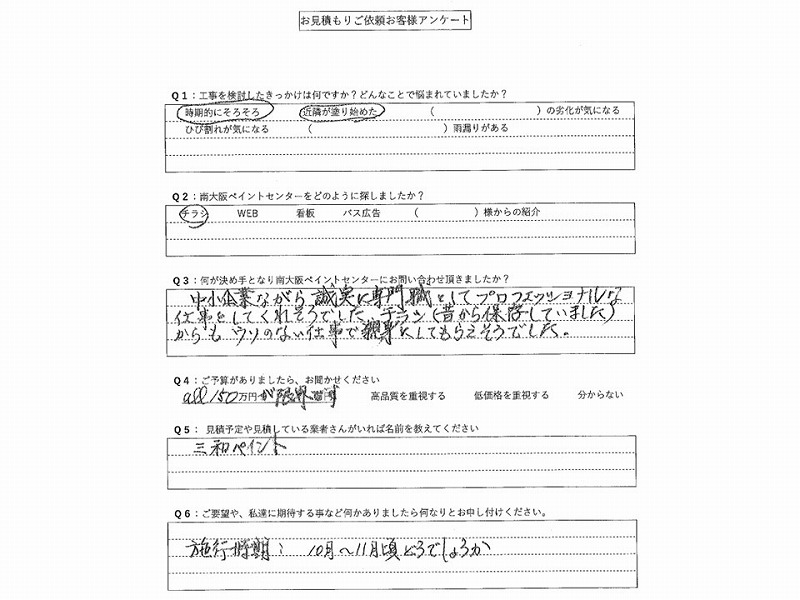 お見積もりご依頼お客様アンケート
Q1：工事を検討したきっかけは何ですか？どんなことで悩まれていましたか？
時期的にそろそろ 近隣が塗り始めた （ ）の劣化が気になる
ひび割れが気になる （ ）雨漏りがある
Q2：南大阪ペイントセンターをどのように探しましたか？
チラシ WEB 看板 バス広告 （ ）様からの紹介
Q3：何が決め手となり南大阪ペイントセンターにお問い合わせ頂きましたか？
中小企業ながら誠実に専門職としてプロフェッショナルな
仕事をしてくれそうでした。チラシ（昔から保存していました）
からもウソのない仕事で親身にしてもらえそうでした。
Q4：ご予算がありましたら、お聞かせください
all 150万円が限界です 高品質を重視する 低価格を重視する 分からない
Q5： 見積予定や見積している業者さんがいれば名前を教えてください
三和ペイント
Q6：ご要望や、私達に期待する事など何かありましたら何なりとお申し付けください。
施行時期： 10月～11月頃どうでしょうか